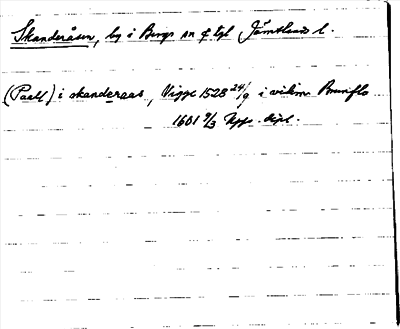 Skanderåsen, by i Bergs sn o tgl Jämtlands l.
(Paell) i skanderaas, Vigge 1528 24/9 i vidim. Brunflo
1601 9/3 Upps. dipl.